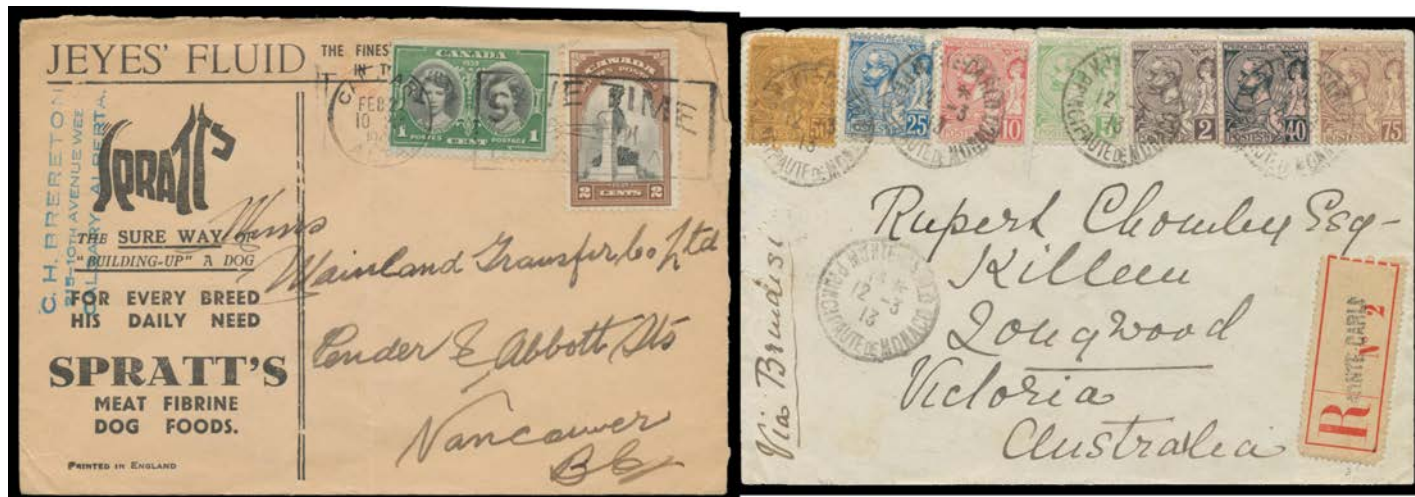 JEYES' FLUID
THE FINES
IN T
C. H. BRERETON
215-10TH AVENUE WEE
CALGARY, ALBERTA.
SPRATT'S
THE SURE WAY OF
"BUILDING-UP" A DOG
FOR EVERY BREED
HIS DAILY NEED
SPRATT'S
MEAT FIBRINE
DOG FOODS.
PRINTED IN ENGLAND
CANADA
1 CENT 1
POSTES POSTAGE
CANADA
2 CENTS 2
FEB 2
10
TIME
Mainland Transfer Co Ltd
Pender & Abbott Sts
Vancouver
BC
50
25
10
5
2
40
75
MONTE-CARLO
PRINCIPAUTE DE MONACO
12 - 3
13
Via Brindisi
Rupert Chomley Esq-
Killeen
Longwood
Victoria
Australia
R
MONTE-CARLO
No 2